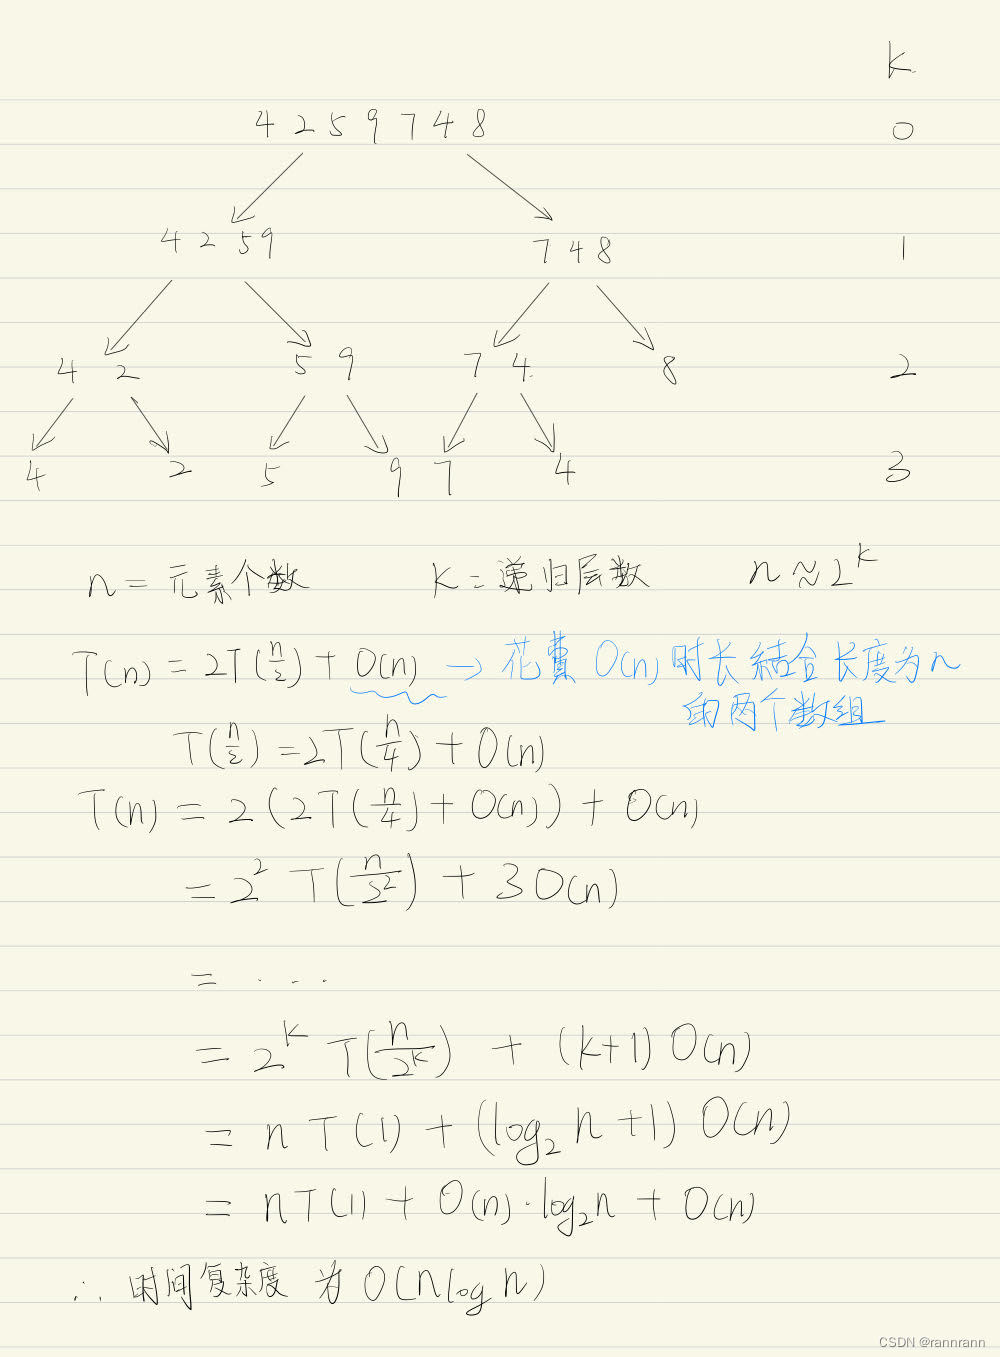 k
4 2 5 9 7 4 8 0
4 2 5 9 7 4 8 1
4 2 5 9 7 4 8 2
4 2 5 9 7 4 3
n = 元素个数 k = 递归层数 n ≈ 2^k
T(n) = 2T(n/2) + O(n) → 花費 O(n) 时长 結合 长度为 n
的两个数组
T(n/2) = 2T(n/4) + O(n)
T(n) = 2(2T(n/4) + O(n)) + O(n)
= 2^2 T(n/2^2) + 3O(n)
= ...
= 2^k T(n/2^k) + (k+1) O(n)
= n T(1) + (log₂ n + 1) O(n)
= nT(1) + O(n)·log₂n + O(n)
∴ 时间复杂度 为 O(n log n)
CSDN @rannrann